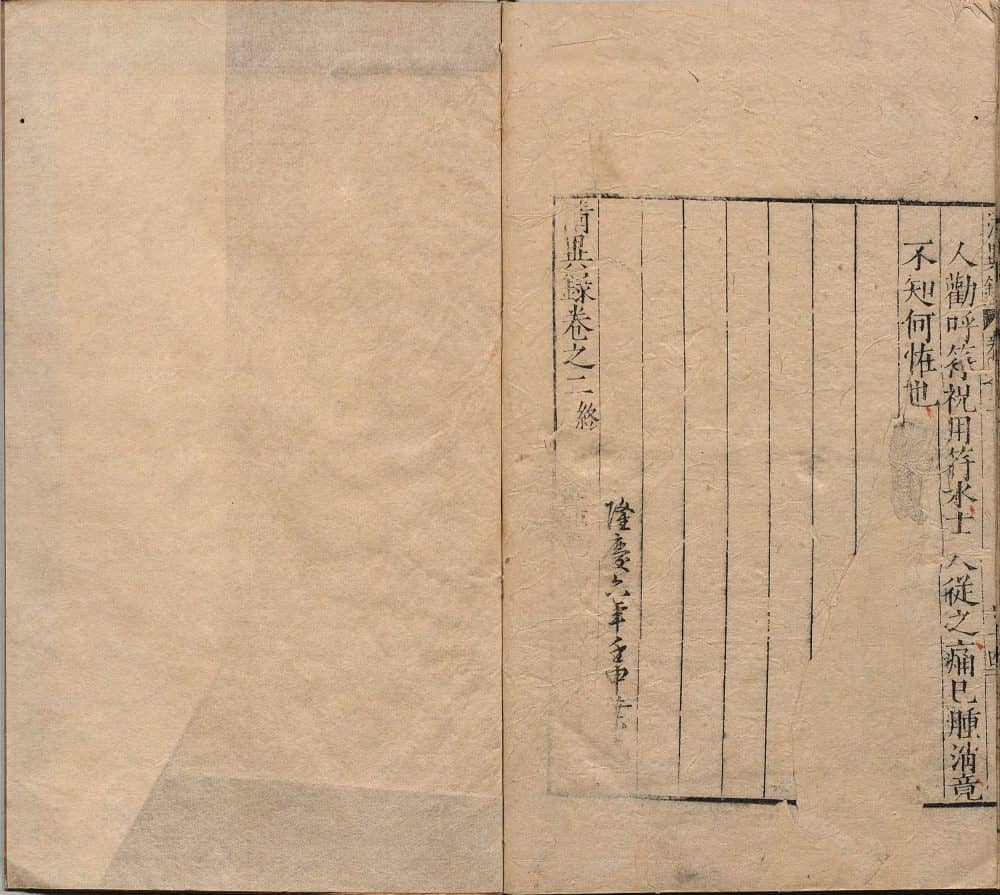 清異錄 卷
人勸呼符祝用符水士人從之痛已腫消竟
不知何恠也
隆慶六年壬申
清異錄卷之二終